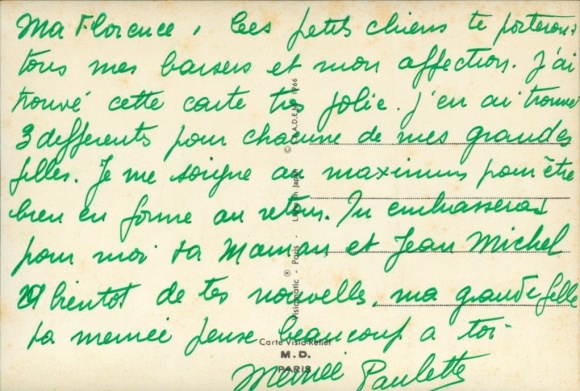 Ma Florence, Ces petits chiens te porteront
tous mes baisers et mon affection. j'ai
trouvé cette carte très jolie. j'en ai trouvé
3 differents pour chacune de mes grandes
filles. Je me soigne au maximum pour être
bien en forme au retour. Tu embrasseras
pour moi ta Maman et Jean Michel
A bientot de tes nouvelles, ma grande fille
ta memée pense beaucoup a toi.
Carte Visiorelief
M.D.
PARIS
Memée Paulette
1966
Paris